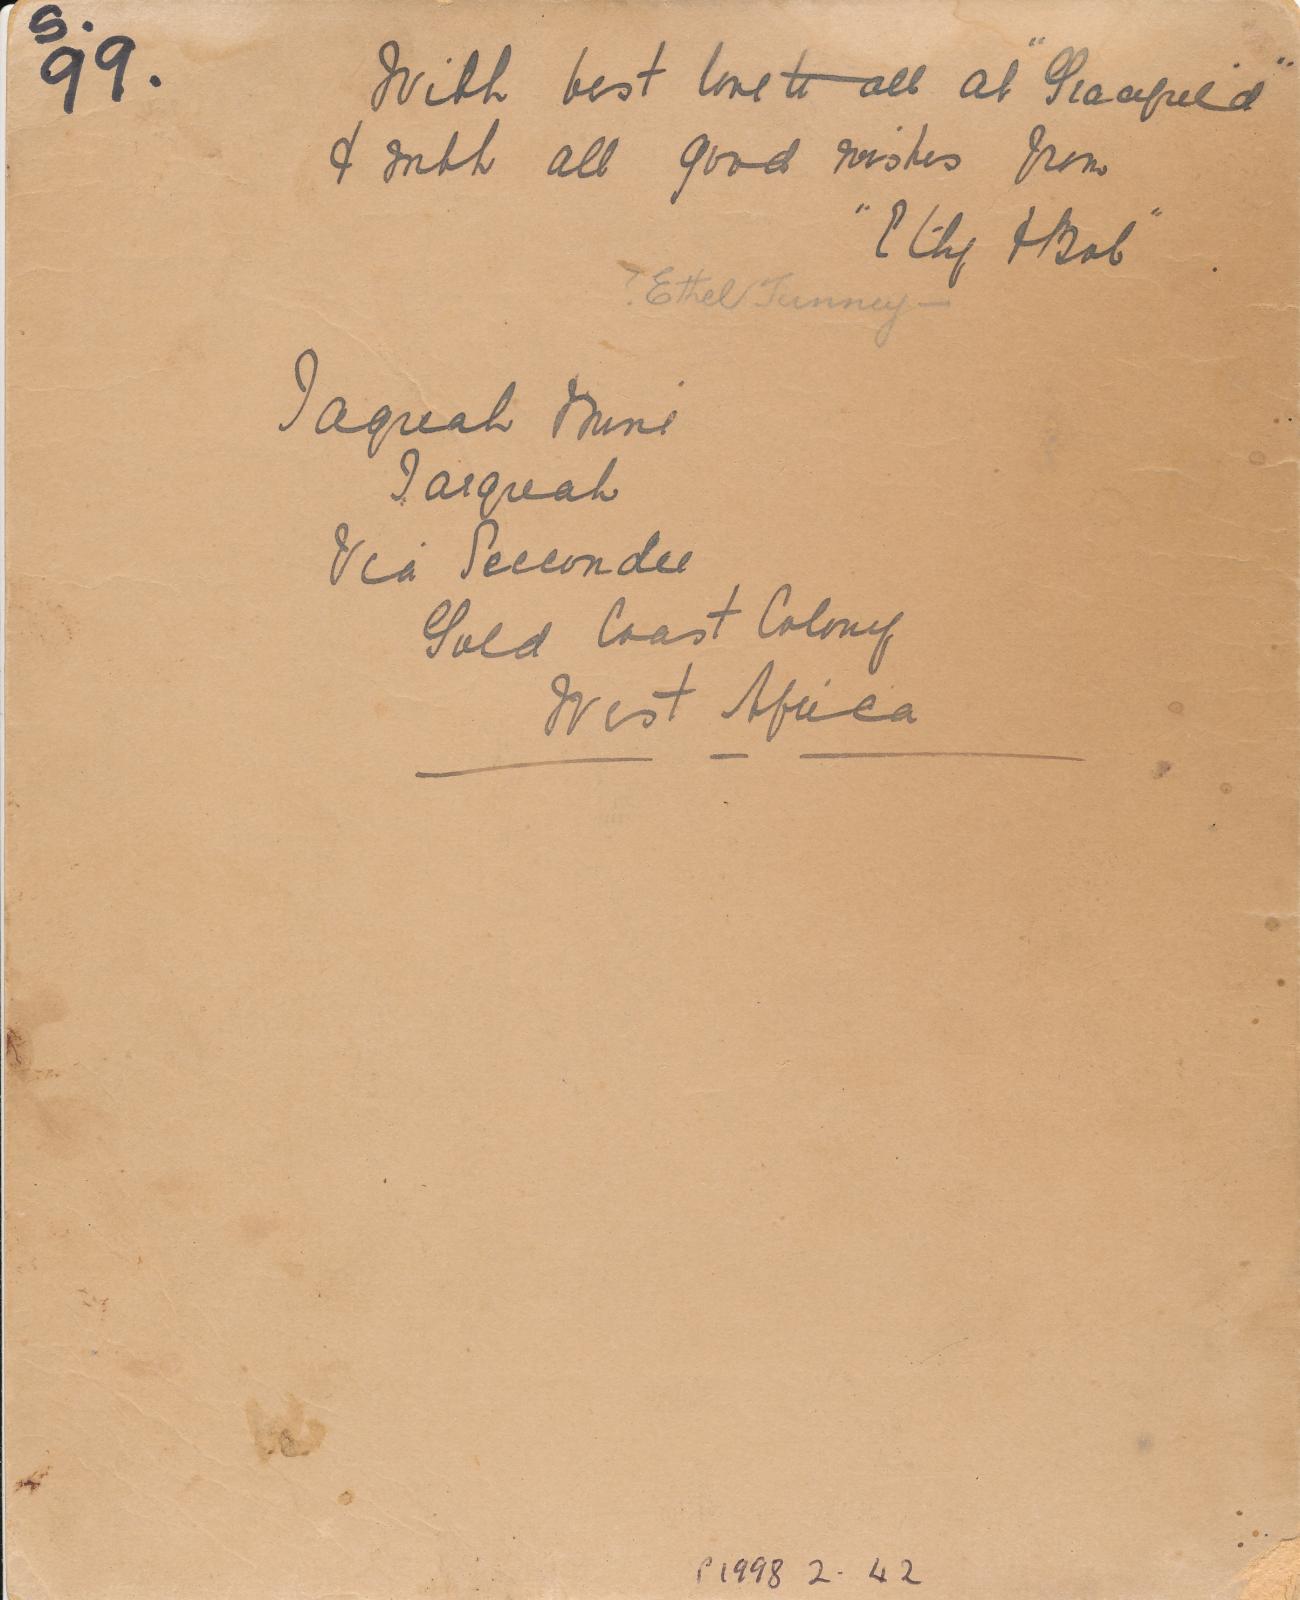 S.
99.
With best love to all at "Gracefield"
& with all good wishes from
"Ethy & Bob"
? Ethel Tunney —
Taquah Mine
Tarquah
Via Seccondee
Gold Coast Colony
West Africa
P1998 2. 42